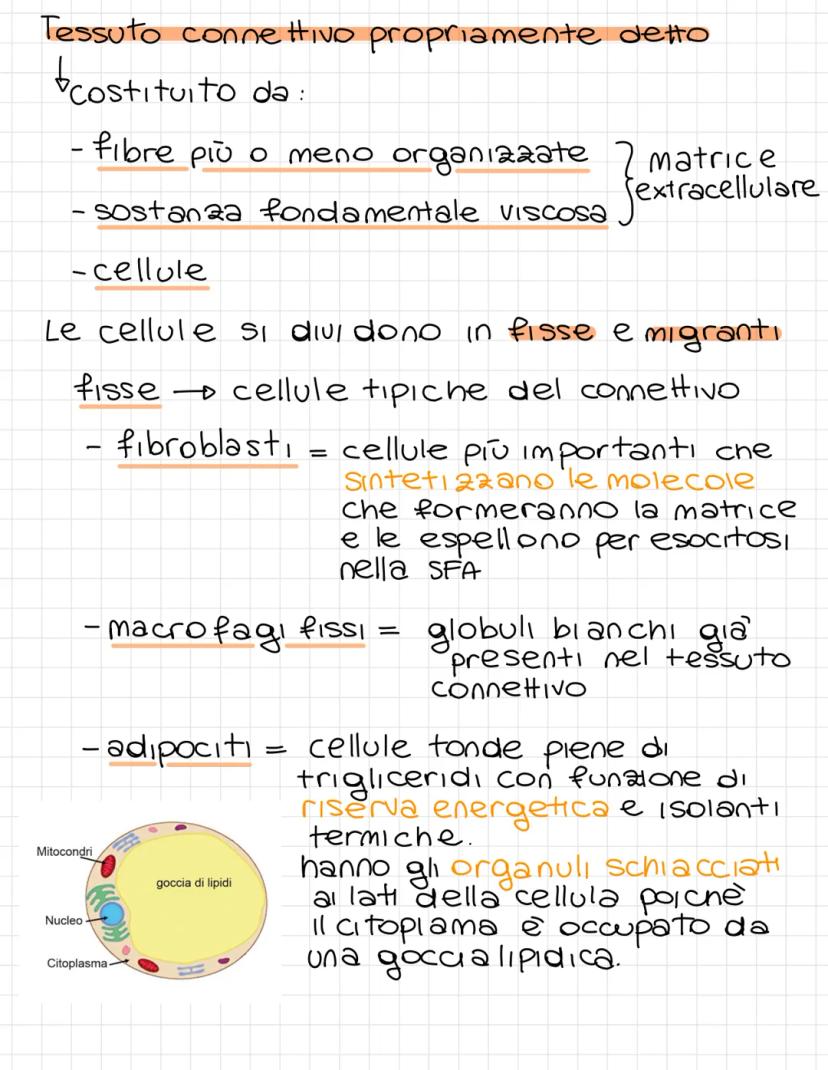 Tessuto connettivo propriamente detto
costituito da:
- fibre più o meno organizzate
matrice
extracellulare
- sostanza fondamentale viscosa
- cellule
Le cellule si dividono in fisse e migranti
fisse → cellule tipiche del connettivo
- fibroblasti = cellule più importanti che
sintetizzano le molecole
che formeranno la matrice
e le espellono per esocitosi
nella SFA
- macrofagi fissi = globuli bianchi già
presenti nel tessuto
connettivo
- adipociti = cellule tonde piene di
trigliceridi con funzione di
riserva energetica e isolanti
termiche.
hanno gli organuli schiacciati
ai lati della cellula poichè
il citoplama è occupato da
una goccia lipidica.
Mitocondri
goccia di lipidi
Nucleo
Citoplasma